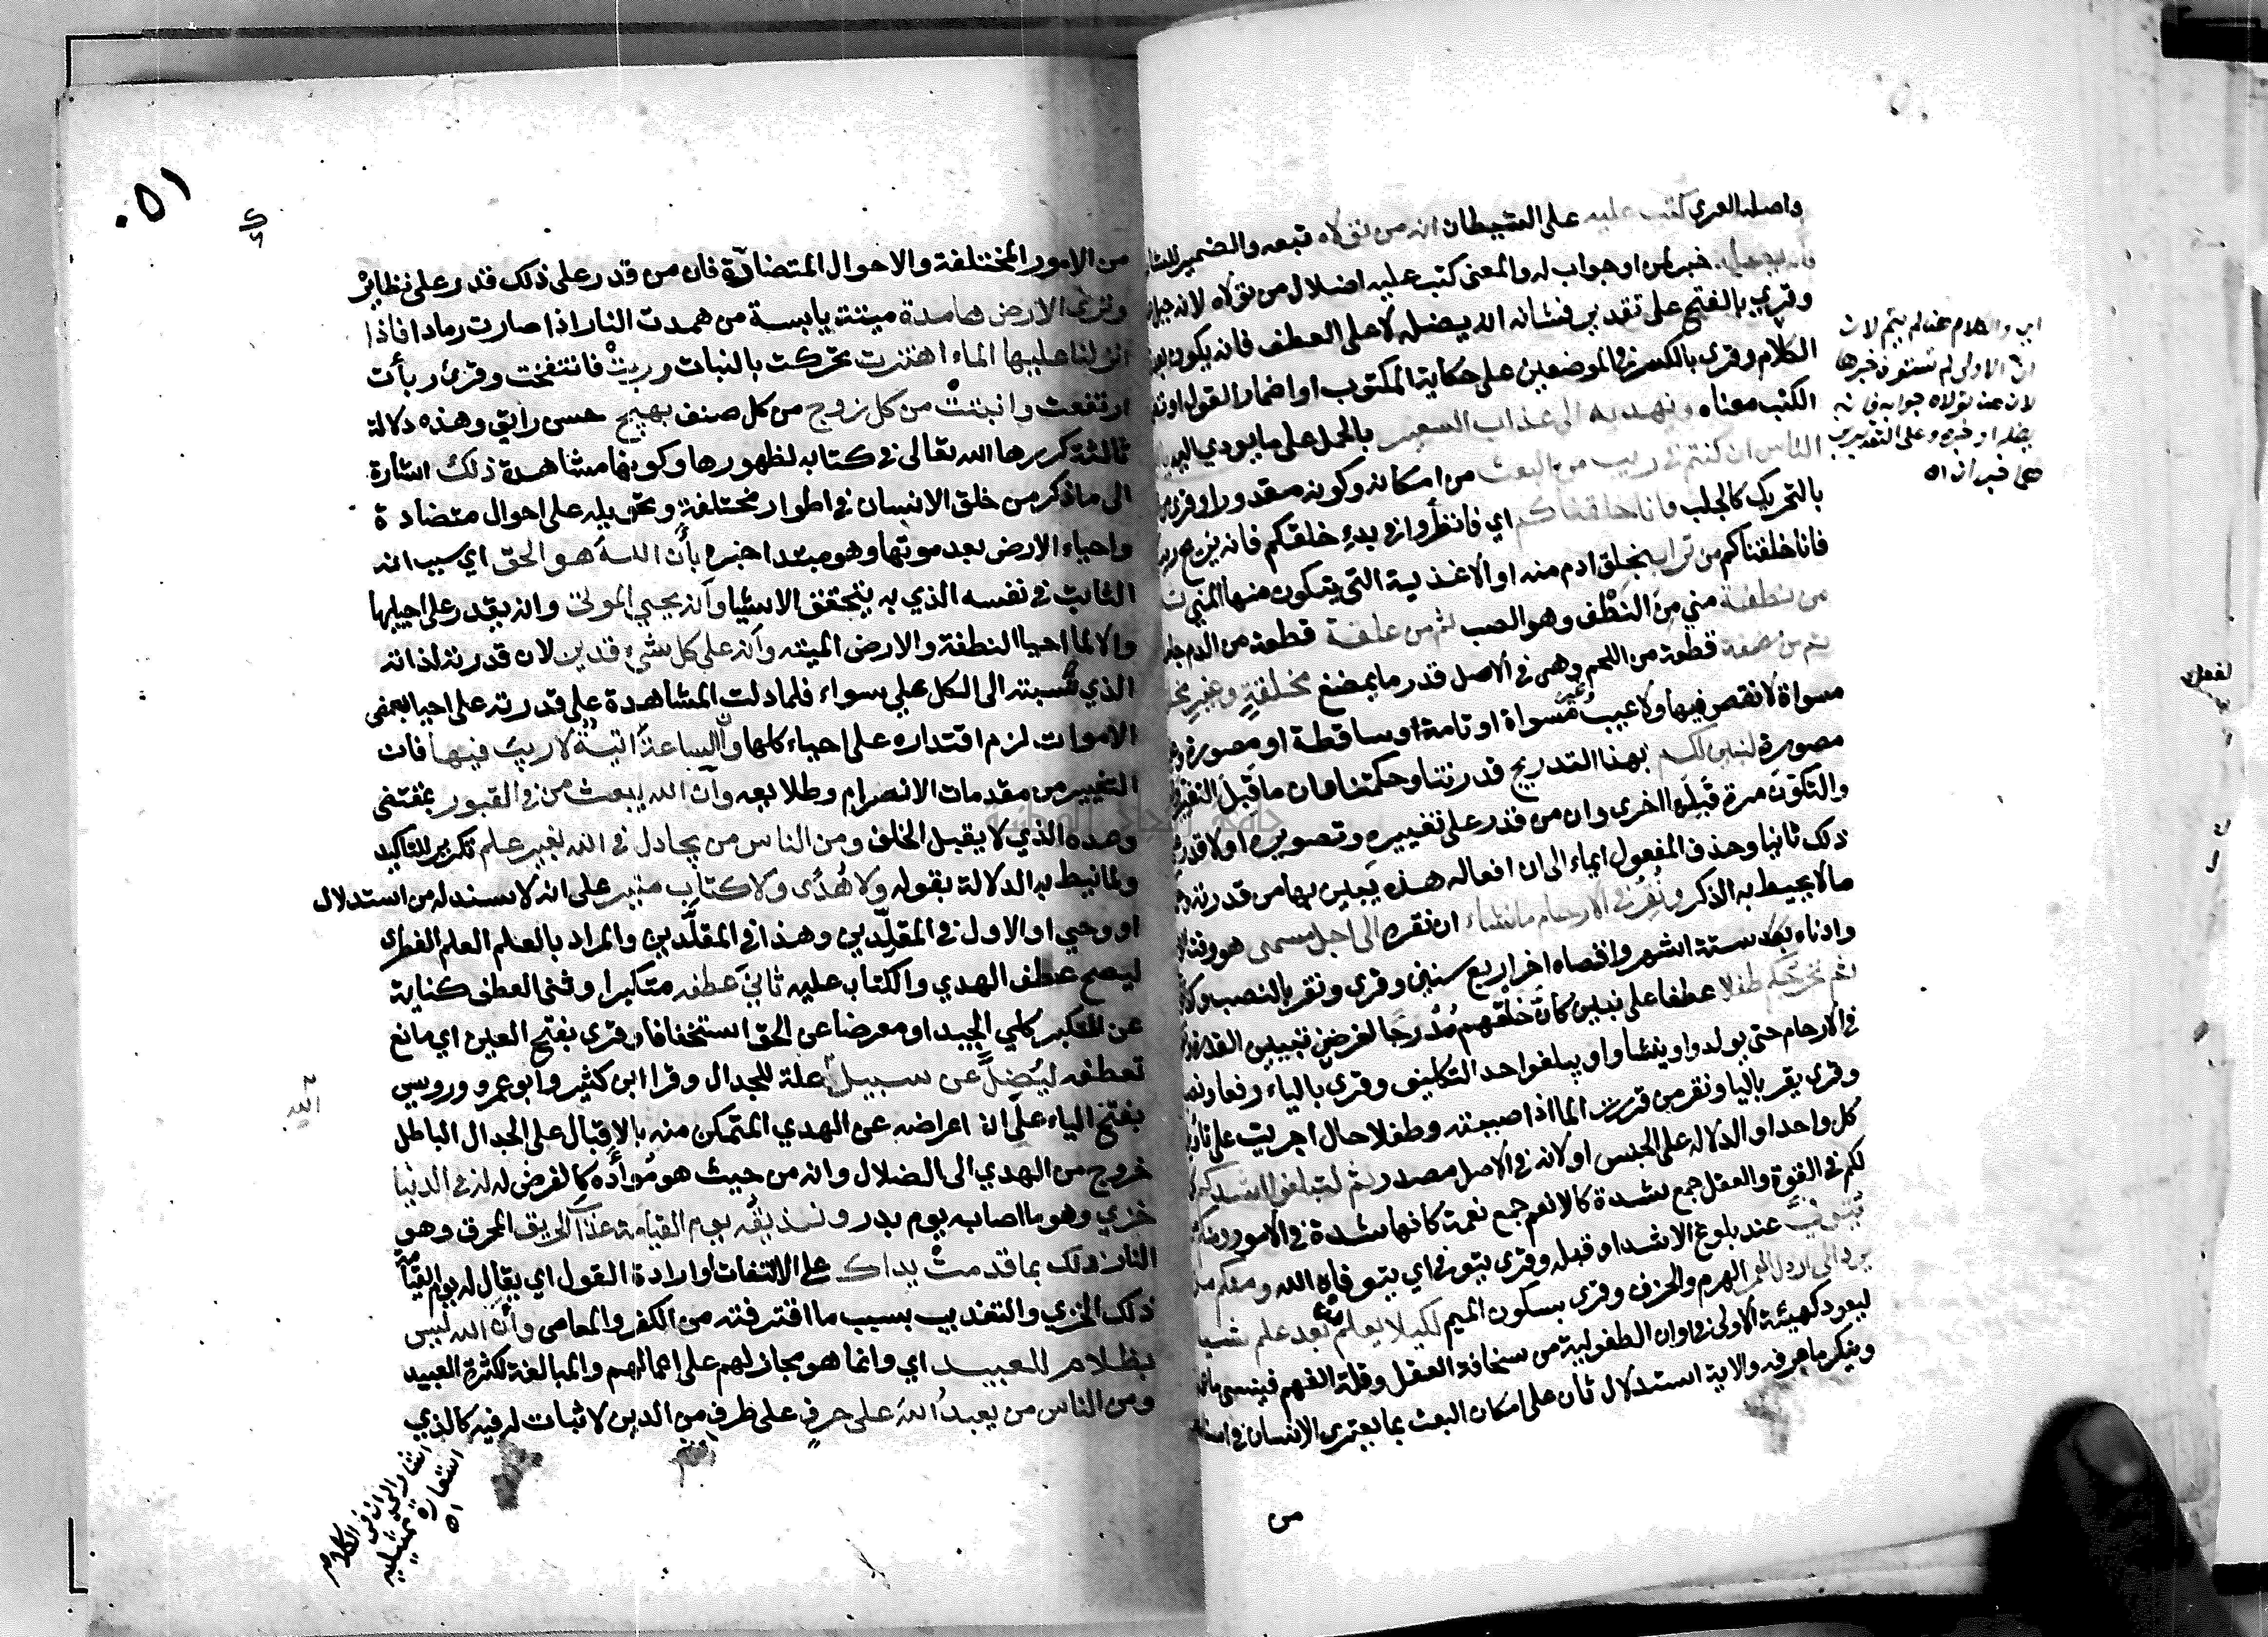 واصله العري كتب عليه على الشيطان انه من تولاه تبعه والضمير للشان
فانه يضله خبر لمن او جواب له والمعنى كتب عليه اضلال من تولاه لانه جبل
وقرئ بالفتح على تقدير فشانه انه يضله لا على العطف فانه يكون بعد
الكلام وقرئ بالكسر في الموضعين على حكاية المكتوب او اضمار القول او تضمين
الكتب معناه ويهديه الى عذاب السعير بالحمل على ما يودي اليه
الناس ان كنتم في ريب من البعث من امكانه وكونه مقدورا وقرئ
بالتحريك كالجلب فانا خلقناكم اي فانظروا في بدء خلقكم فانه يزيح ريبكم
فانا خلقناكم من تراب بخلق ادم منه او الاغذية التي يتكون منها المني ثم
من نطفة مني من النطف وهو الصب ثم من علقة قطعة من الدم جامدة
ثم من مضغة قطعة من اللحم وهي في الاصل قدر ما يمضغ مخلقة وغير مخلقة
مسواة لا نقص فيها ولا عيب وغير مسواة او تامة او ساقطة او مصورة وغير
مصورة لنبين لكم بهذا التدريج قدرتنا وحكمتنا وان ما قبل التغير
والتكون مرة قبلها اخرى وان من قدر على تغييره وتصويره اولا قدر على
ذلك ثانيا وحذف المفعول ايماء الى ان افعاله هذه يتبين بها من قدرته
ما لا يحيط به الذكر ونقر في الارحام ما نشاء ان نقره الى اجل مسمى هو وقت
وادناه بعد ستة اشهر واقصاه اخر اربع سنين وقرئ ونقر بالنصب وكذا
ثم نخرجكم طفلا عطفا على نبين كان خلقهم مدرجا لغرضين تبيين القدرة
في الارحام حتى يولدوا وينشاوا ويبلغوا حد التكليف وقرئ بالياء رفعا ونصبا
وقرئ يقر باليا ونقر من قررت الما اذا صببته وطفلا حال اجريت على تاويل
كل واحد او الدلاله على الجنس او لانه في الاصل مصدر ثم لتبلغوا اشدكم
لكم في القوة والعقل جمع شدة كالانعم جمع نعمة كانها شدة في الامور ومنكم
يتوفى عند بلوغ الاشد او قبله وقرئ يتوفى اي يتوفاه الله ومنكم من
يرد الى ارذل العمر الهرم والخرف وقرئ بسكون الميم لكيلا يعلم من بعد علم شيا
ليعود كهيئته الاولى في اوان الطفولية من سخافة العقل وقلة الفهم فينسى ما
وينكر ما عرفه والاية استدلال ثان على امكان البعث بما يعتري الانسان في اسنانه
من
اي والكلام عنه لم يتم لان
ان الاولى لم تستوف خبرها
لان عند تولاه جوابه فانه
يضله او خبره وعلى التقديرين
هي خبر ان اه
٠٥١
من الامور المختلفة والاحوال المتضادة فان من قدر على ذلك قدر على نظايره
وترى الارض هامدة ميتة يابسة من همدت النار اذا صارت رمادا فاذا
انزلنا عليها الماء اهتزت تحركت بالنبات وربت فانتفخت وقرئ ربأت
ارتفعت وانبتت من كل زوج من كل صنف بهيج حسن رايق وهذه دلالة
ثالثة كررها الله تعالى في كتابه لظهورها وكونها مشاهدة ذلك اشارة
الى ما ذكر من خلق الانسان في اطوار مختلفة وتحويله على احوال متضادة
واحياء الارض بعد موتها وهو مبتدا خبره بأن الله هو الحق اي بسبب انه
الثابت في نفسه الذي به يتحقق الاشيا وأنه يحيي الموتى وانه يقدر على احيايها
والا لما احيا النطفة والارض الميتة وانه على كل شيء قدير لان قدرته لذاته
الذي نسبته الى الكل على سواء فلما دلت المشاهدة على قدرته على احيا بعض
الاموات لزم اقتداره على احياء كلها وان الساعة اتية لا ريب فيها فان
التغيير من مقدمات الانصرام وطلايعه وان الله يبعث من في القبور بمقتضى
وعده الذي لا يقبل الخلف ومن الناس من يجادل في الله بغير علم تكرير للتاكيد
ولما نيط به الدلالة بقوله ولا هدى ولا كتاب منير على انه لا سند له من استدلال
او وحي او الاول في المقلدين وهذا في المقلدين والمراد بالعلم العلم الفطري
ليصح عطف الهدي والكتاب عليه ثاني عطفه متكبرا وثنى العطف كناية
عن التكبر كلي الجيد او معرضا عن الحق استخفافا وقرئ بفتح العين اي مانع
تعطفه ليضل عن سبيل الله علة للجدال وقرا ابن كثير وابو عمرو ورويس
بفتح الياء على ان اعراضه عن الهدي المتمكن منه بالاقبال على الجدال الباطل
خروج من الهدي الى الضلال وانه من حيث هو مؤداه كالغرض له له في الدنيا
خزي وهو ما اصابه يوم بدر ونذيقه يوم القيامة عذاب الحريق المحرق وهو
النار ذلك بما قدمت يداك على الالتفات او ارادة القول اي يقال له يوم القيامة
ذلك الخزي والتعذيب بسبب ما اقترفته من الكفر والمعاصي وأن الله ليس
بظلام للعبيد اي وانما هو مجاز لهم على اعمالهم والمبالغة لكثرة العبيد
ومن الناس من يعبد الله على حرف على طرف من الدين لا ثبات له فيه كالذي
الله
اشار الى ان في الكلام
استعارة تمثيلية
اه